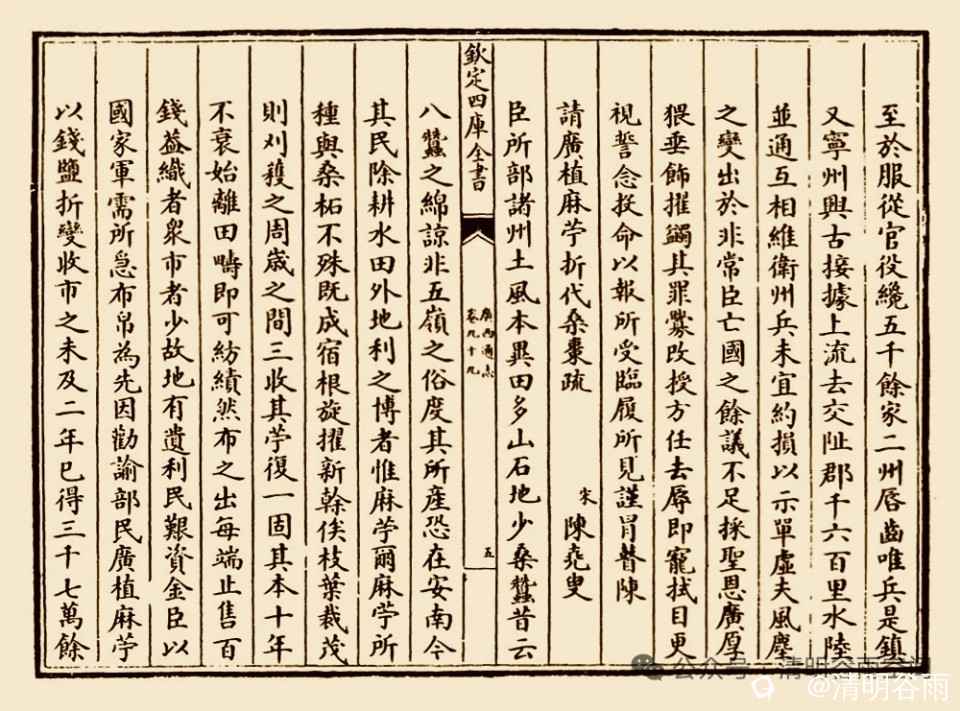 至於服從官役纔五千餘家二州唇齒唯兵是鎮
又寧州興古接據上流去交阯郡千六百里水陸
並通互相維衛州兵未宜約損以示單虛夫風塵
之變出於非常臣亡國之餘議不足採聖恩廣厚
猥垂飾擢蠲其罪釁改授方任去辱即寵拭目更
視誓念投命以報所受臨履所見謹冒瞽陳
請廣植麻苧折代桑棗疏
宋 陳堯叟
臣所部諸州土風本異田多山石地少桑蠶昔云
欽定四庫全書
廣西通志
卷九十九
五
八蠶之綿諒非五嶺之俗度其所産恐在安南今
其民除耕水田外地利之博者惟麻苧爾麻苧所
種與桑柘不殊既成宿根旋擢新榦俟枝葉裁茂
則刈穫之周歳之間三收其苧復一固其本十年
不衰始離田疇即可紡績然布之出每端止售百
錢益織者衆市者少故地有遺利民艱資金臣以
國家軍需所急布帛為先因勸諭部民廣植麻苧
以錢鹽折變收市之未及二年已得三十七萬餘
公众号 清明谷雨
@清明谷雨